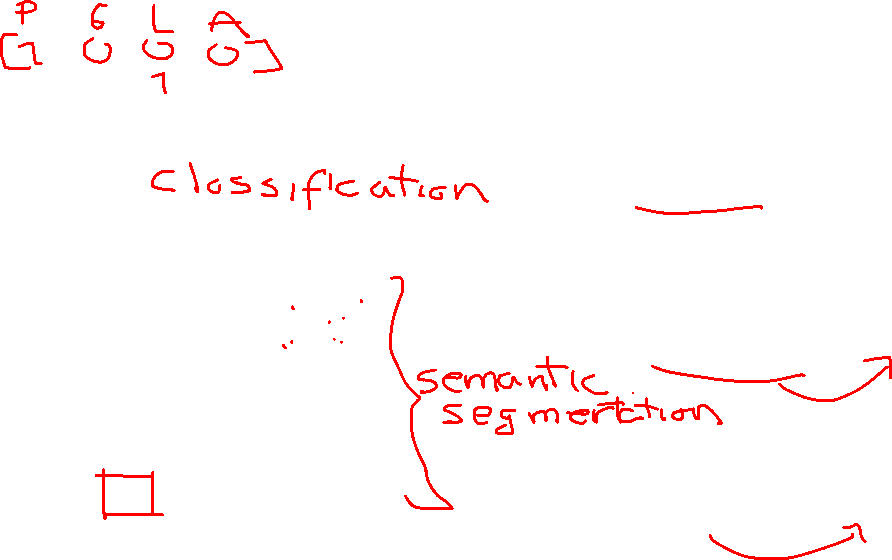 P G L A
[1 0 0 0]
1
Classification
semantic
segmentation